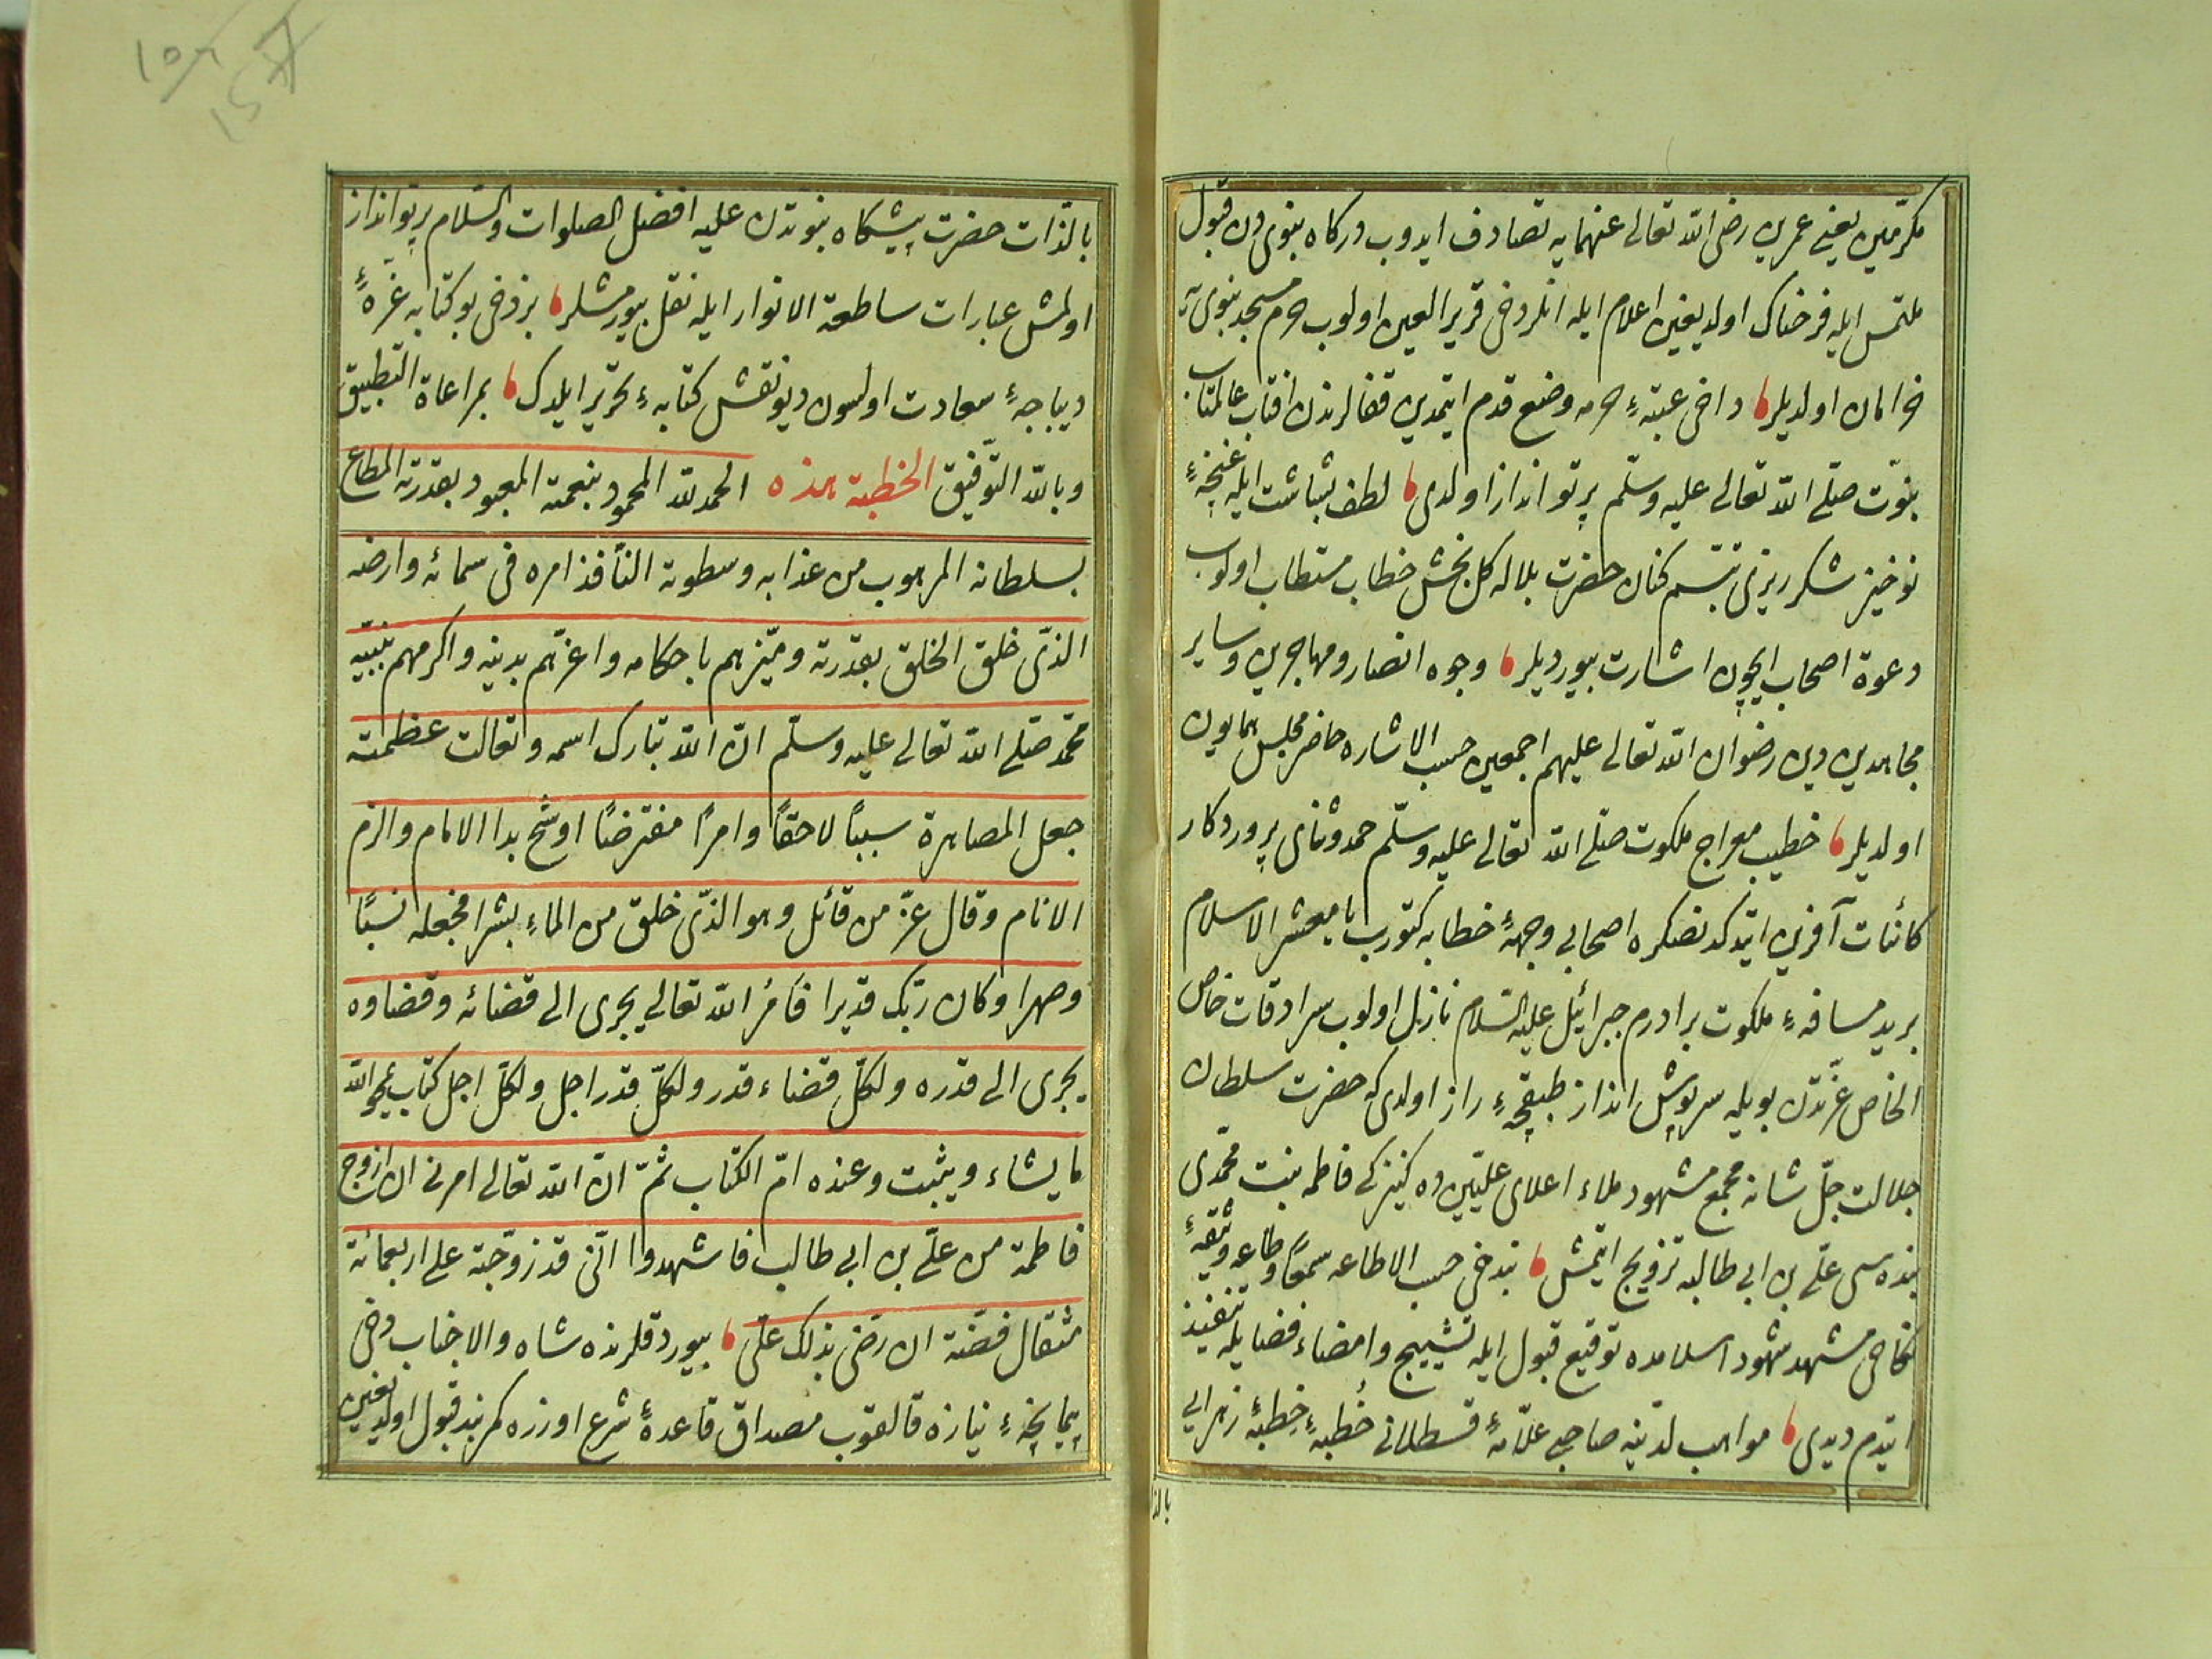 مكرّمين يعنى عمرين رضى الله تعالى عنهمايه تصادف ايدوب دركاه نبوى دن قبول
ملتمس ايله فرحناك اولديغين اعلام ايله انلر دخى قرير العين اولوب حرم مسجد نبوى يه
خرامان اولديلر داخى عتبهٔ حرمه وضع قدم ايتمدين قفالرندن افتاب عالمتاب
نبوّت صلّى الله تعالى عليه وسلّم پرتو انداز اولدى لطف بشاشت ايله غنچهٔ
نوخيز شكرريزى تبسّم كنان حضرت بلاله كل بخش خطاب مستطاب اولوب
دعوة اصحاب ايچون اشارت بيورديلر وجوه انصار ومهاجرين وساير
مجاهدين دين رضوان الله تعالى عليهم اجمعين حسب الاشاره حاضر مجلس همايون
اولديلر خطيب معراج ملكوت صلّى الله تعالى عليه وسلّم حمد وثناى پروردكار
كائنات آفرين ايتدكدنصكره اصحابى وجههٔ خطابه كتورب يا معشر الاسلام
بريد مسافهٔ ملكوت برادرم جبرائيل عليه السلام نازل اولوب سرادقات خاص
الخاص عزّتدن بويله سرپوش انداز طبقچهٔ راز اولدى كه حضرت سلطان
جلالت جلّ شانه مجمع مشهود ملاء اعلاى علّيين ده كنيزكى فاطمه بنت محمّدى
بنده سى علّى بن ابى طالبه تزويج ايتمش بندخى حسب الاطاعه سمعًا وطاعه وثيقهٔ
نكاحى مشهد شهود اسلامده توقيع قبول ايله تشييج وامضاء فضايله تنفيذ
ايتدم ديدى مواهب لدنّيه صاحبى علّامهٔ قسطلانى خُطبهٔ خِطبهٔ زهرايى
بالذ
بالذّات حضرت پيشكاه نبوّتدن عليه افضل الصلوات والسّلام پرتو انداز
اولمش عبارات ساطعة الانوار ايله نقل بيورمشلر بزدخى بو كتابه غرّهٔ
ديباجهٔ سعادت اولسون ديو نقش كتابهٔ تحرير ايلدك بمراعاة التطبيق
وبالله التّوفيق الخطبة هذه الحمد لله المحمود بنعمته المعبود بقدرته المطاع
بسلطانه المرهوب من عذابه وسطوته النّافذ امره فى سمائه وارضه
الذّى خلق الخلق بقدرته وميّزهم باحكامه واعزّهم بدينه واكرمهم بنبيّه
محمّد صلّى الله تعالى عليه وسلّم انّ الله تبارك اسمه وتعالت عظمته
جعل المصاهرة سببًا لاحقًا وامرًا مفترضًا اوشح بدا الامام والزم
الانام وقال عزّ من قائل وهو الذّى خلق من الماء بشرا فجعله نسبًا
وصهرا وكان ربّك قديرا فَامْرُ الله تعالى يجرى الى قضائه وقضاوه
يجرى الى قدره ولكلّ قضاء قدر ولكلّ قدر اجل ولكلّ اجل كتاب يمحو الله
ما يشاء ويثبت وعنده امّ الكتاب ثمّ انّ الله تعالى امرنى ان ازوج
فاطمة من علّى بن ابى طالب فاشهدوا انّى قد زوّجته على اربعمائة
مثقال فضّة ان رَضى بذلك علّى بيوردقلرنده شاه والاجناب دخى
نيازه قالقوب مصداق قاعدهٔ شرع اوزره كمربند قبول اولديغين